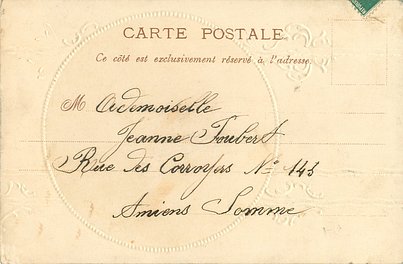 CARTE POSTALE
Ce côté est exclusivement réservé à l'adresse.
Mademoiselle
Jeanne Joubert
Rue des Corroyers No 145
Amiens Somme